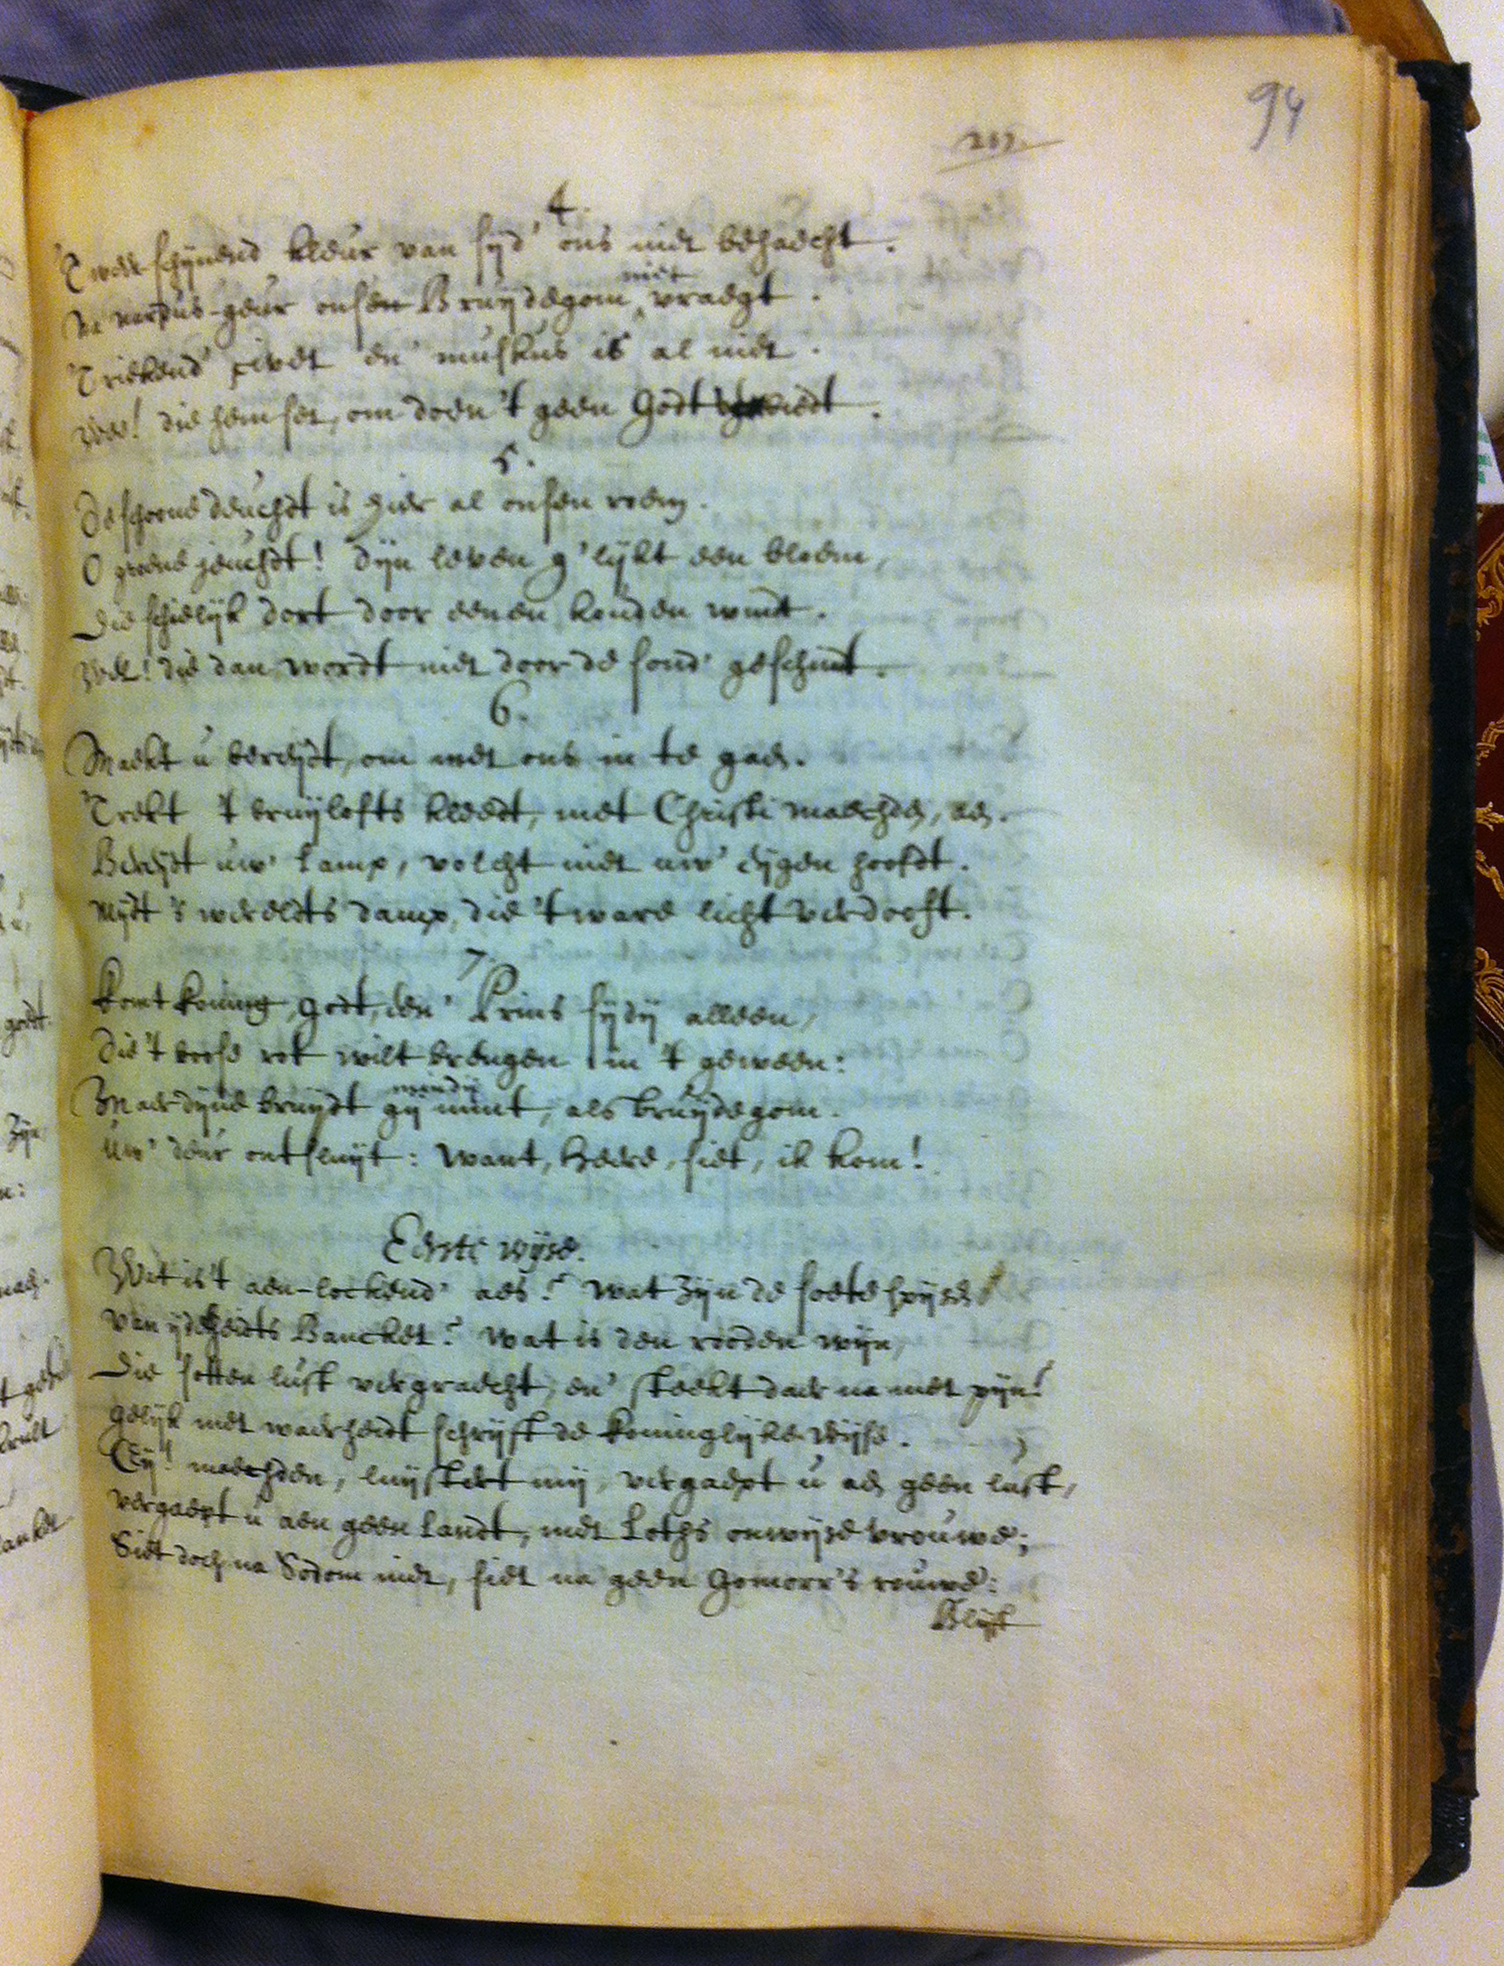 94
4.
'T weerschynend kleur van syd' ons niet behaecht.
Na nardus-geur onsen Bruydegom niet vraegt.
'T riekend' civet en' muskus is al niet.
Wee! die hem set, om doen 't geen Godt verbiedt.
5.
De schoone deuchdt is hier al onsen roem.
O groene jeuchdt! dyn leven g'lykt een bloem,
Die schielyk dort door eenen kouden windt.
Wel! die dan wordt niet door de sond' geschindt.
6.
Maekt u bereydt, om met ons in te gaen.
Trekt 't bruylofts kleedt, met Christi maechden, aen.
Bereydt uw' lamp, volcht niet uw' eygen hooft.
Mydt 's wereldts damp, die 't ware licht verdooft.
7.
Komt koning, Godt, den' Prins sydy alleen,
Die 't boose rot wilt brengen in 't geween:
Maer dyne bruydt gy mint, als bruydegom.
Uw' deur ontsluyt: Want, Heere, siet, ik kom!
Eerste wyse.
Wat is 't aen-lockend' aes? Wat zyn de soete spysen
Van ydelheidts Bancket? Wat is den rooden wyn,
Die sotten lust vergraecht, en' steekt daer na met pyn?
Gelyk met waerheidt schryft de koninglyke Wyse.
Ey! maechden, luystert my, vergaept u aen geen lust,
Vergaept u aen geen landt, met Loths onwyse vrouwe;
Siet doch na Sodom niet, siet na geen Gomorr's rouwe:
Blyft